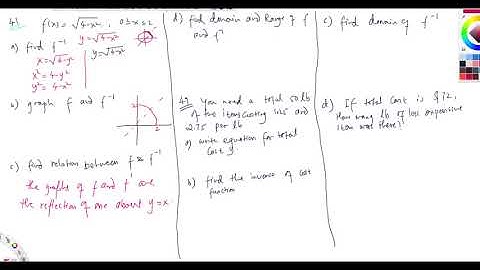 41. f(x) = √4-x² , 0≤x≤2
a) find f⁻¹ y = √4-x²
x = √4-y² y = √4-x²
x² = 4-y²
y² = 4-x²
b) graph f and f⁻¹
2
2
c) find relation between f & f⁻¹
the graphs of f and f are
the reflection of one about y = x
d) find domain and Range of f
and f⁻¹
47. You need a total 50 lb
of two items costing 1.25 and
2.75 per lb
a) write equation for total
cost y
b) find the inverse of cost
function
c) find domain of f⁻¹
d) If total cost is $ 72,
How many lb of less expensive
item was there?